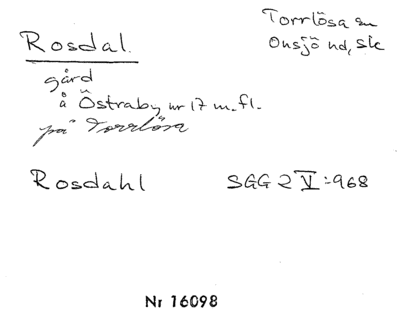 Rosdal.
Torrlösa sn
Onsjö hd, Sk
gård
å Östraby nr 17 m.fl.
på Torrlösa
Rosdahl
SGG 2 V:968
Nr 16098